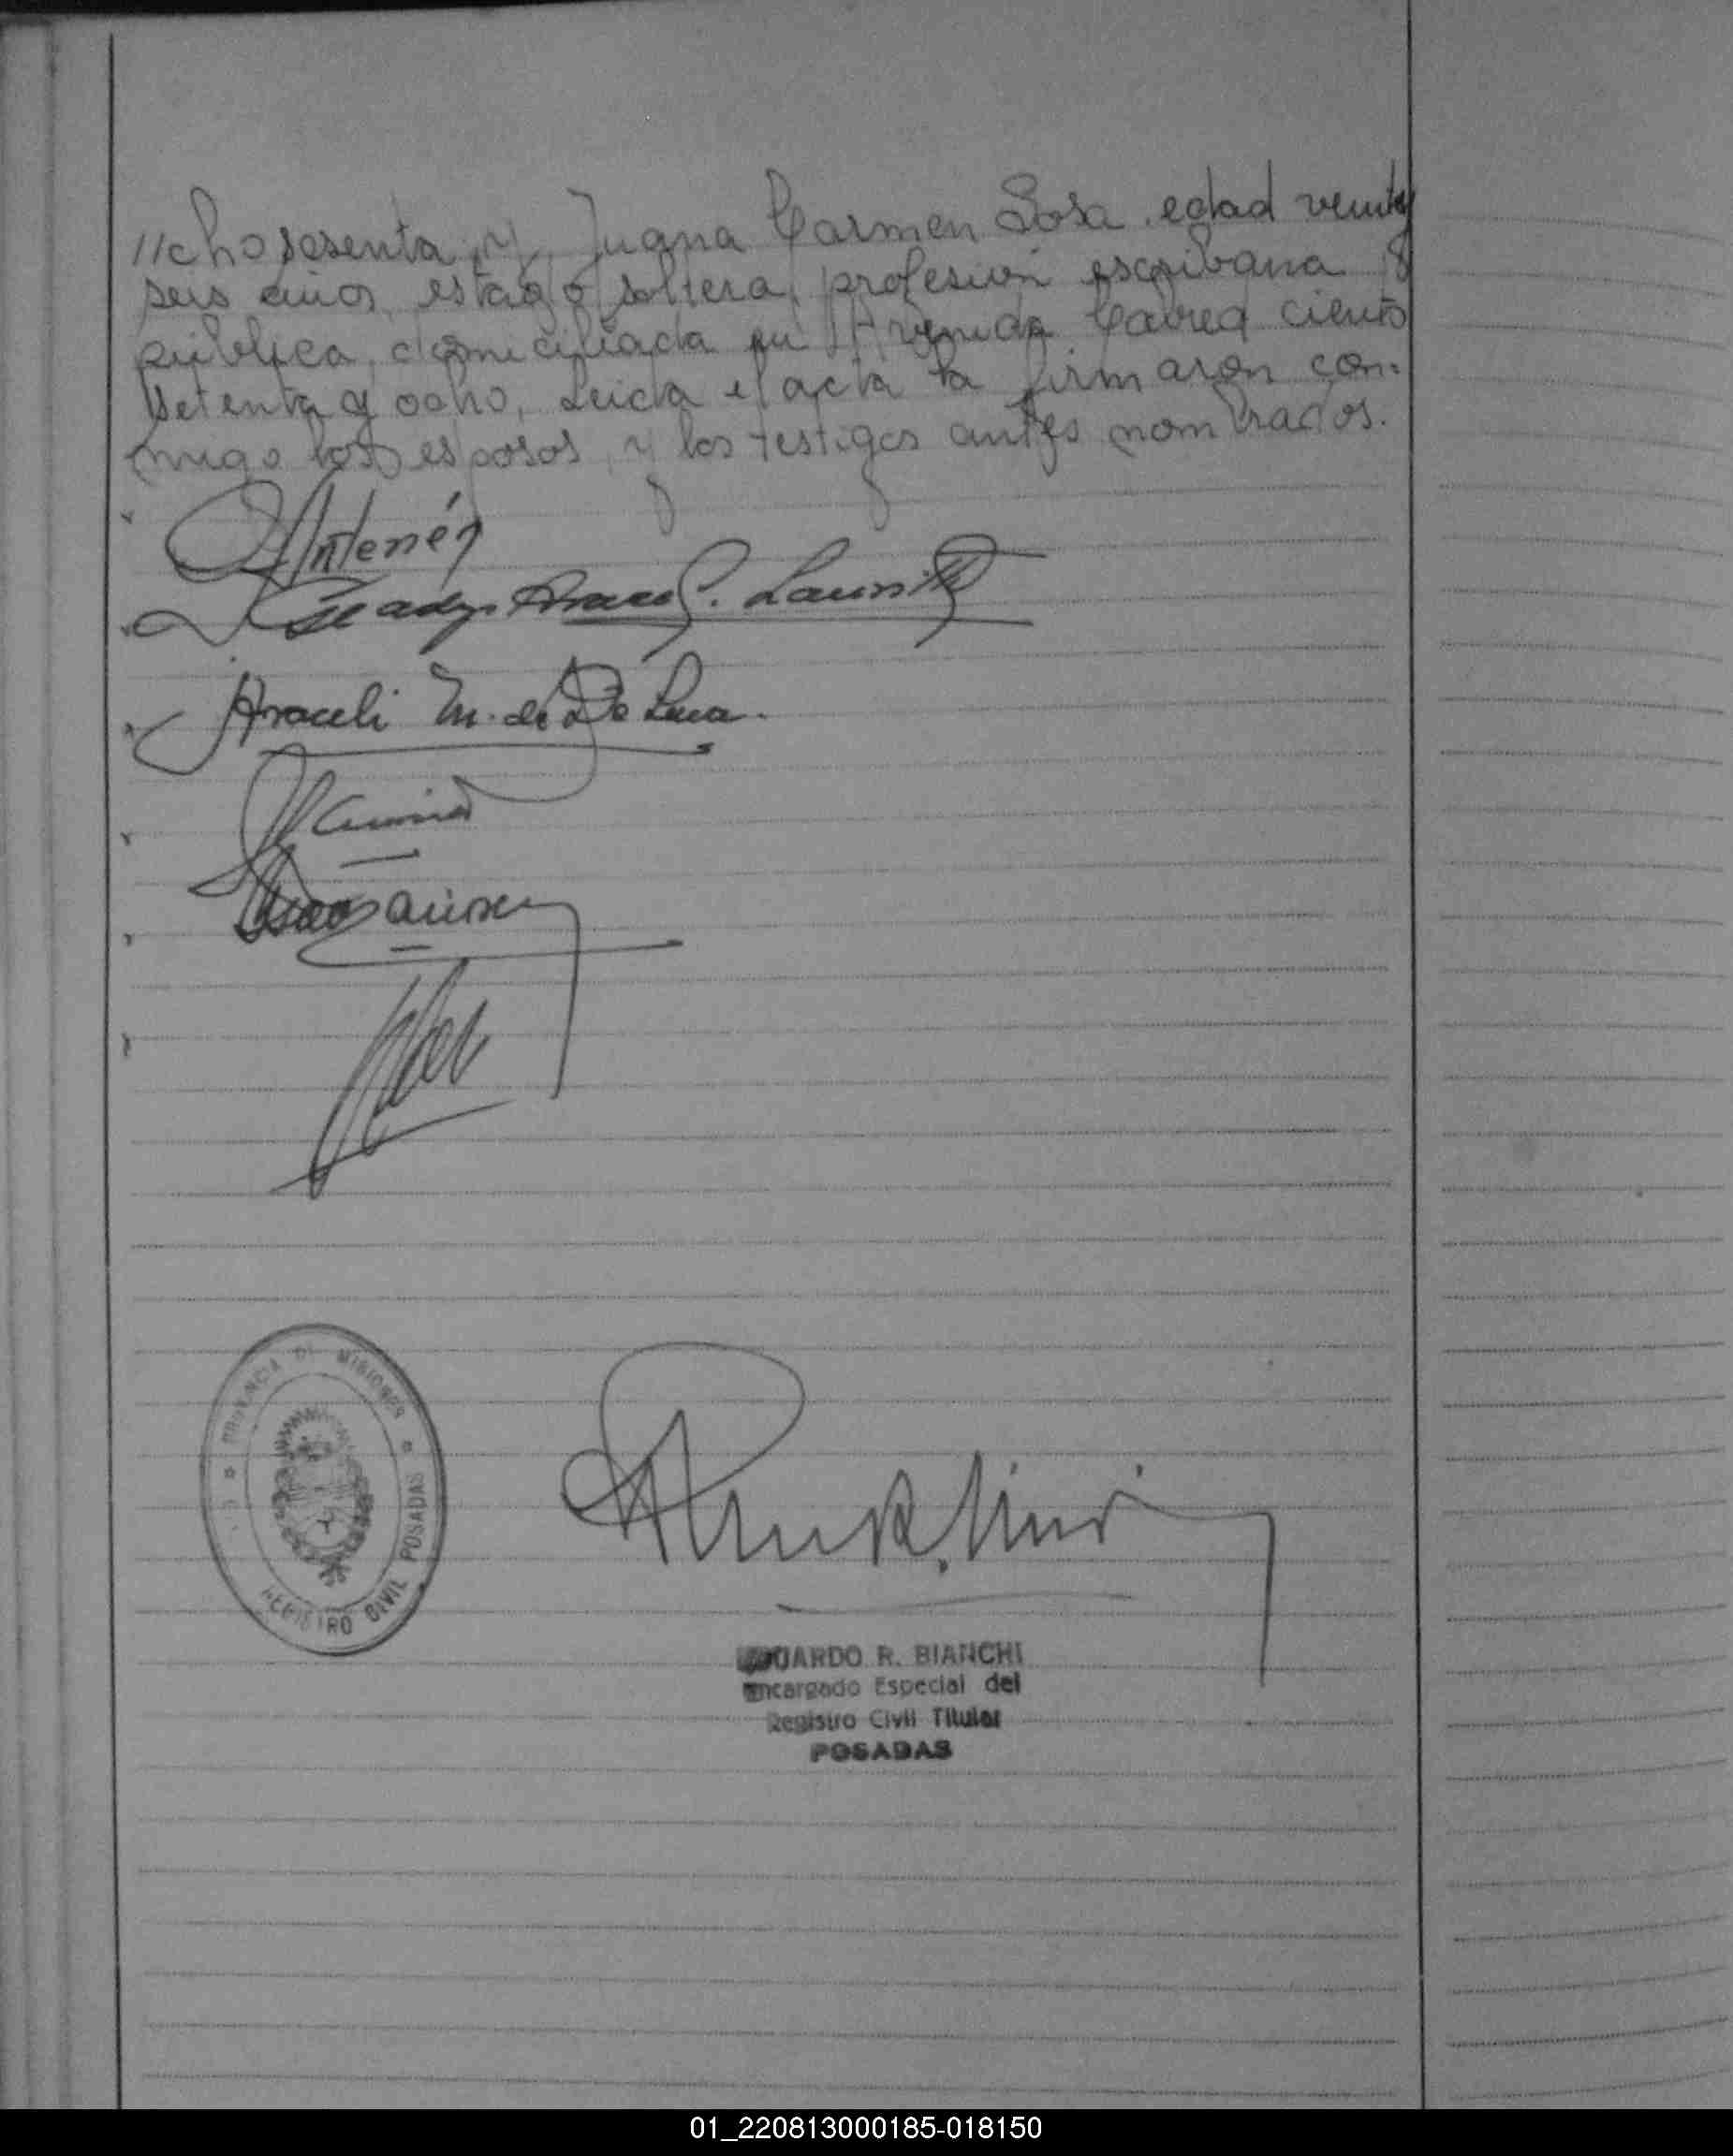 //cho sesenta, y Juana Carmen Sosa. edad veinty
seis años, estado soltera, profesión escribana
pública, domiciliada en Avenida Cabred ciento
setenta y ocho, Leida el acta la firmaron con-
migo los esposos, y los testigos antes nombrados.
Antenén
Gladys
Araceli M. de De Luca.
PROVINCIA DE MISIONES
REGISTRO CIVIL POSADAS
EDUARDO R. BIANCHI
Encargado Especial del
Registro Civil Titular
POSADAS
01_220813000185-018150